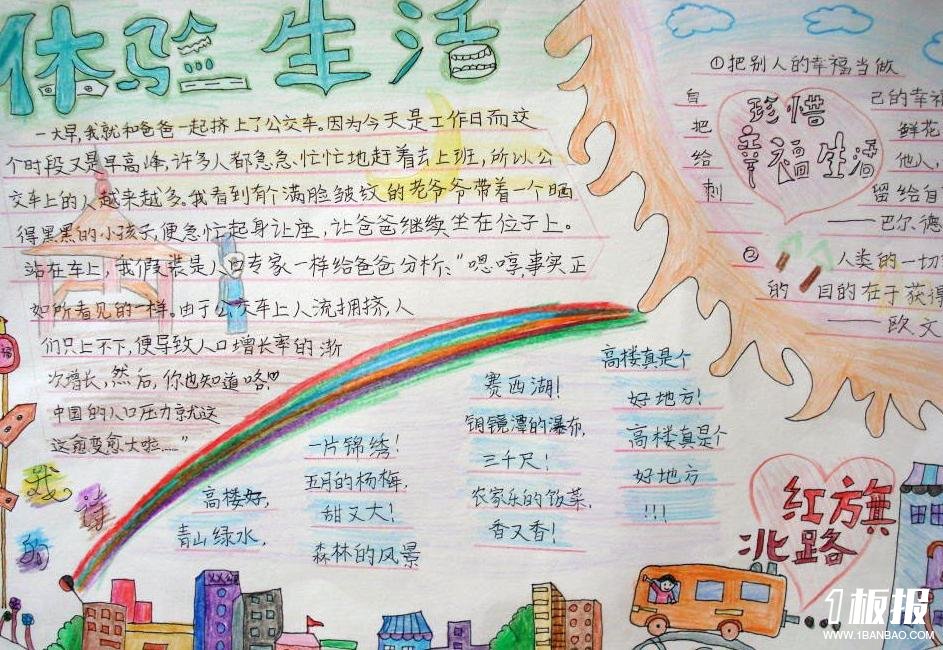 体验生活
一大早,我就和爸爸一起挤上了公交车。因为今天是工作日而这
个时段又是早高峰,许多人都急急忙忙地赶着去上班,所以公
交车上的人越来越多。我看到有个满脸皱纹的老爷爷带着一个晒
得黑黑的小孩子,便急忙起身让座,让爸爸继续坐在位子上。
站在车上,我假装是人口专家一样给爸爸分析:“嗯哼,事实正
如所看见的一样。由于公交车上人流拥挤,人
们只上不下,便导致人口增长率的渐
次增长,然后,你也知道咯!
中国的人口压力就这
这愈变愈大啦……”
我
的
诗
高楼好,
青山绿水,
一片锦绣!
五月的杨梅,
甜又大!
森林的风景
赛西湖!
钥镜潭的瀑布,
三千尺!
农家乐的饭菜,
香又香!
高楼真是个
好地方!
高楼真是个
好地方
!!!
①把别人的幸福当做
自 己的幸福
把 鲜花
给 他人,
刺 留给自
——巴尔德
珍惜
幸福生活
② 人类的一切
的 目的在于获得
——欧文
红旗
北路
1板报
WWW.1BANBAO.COM